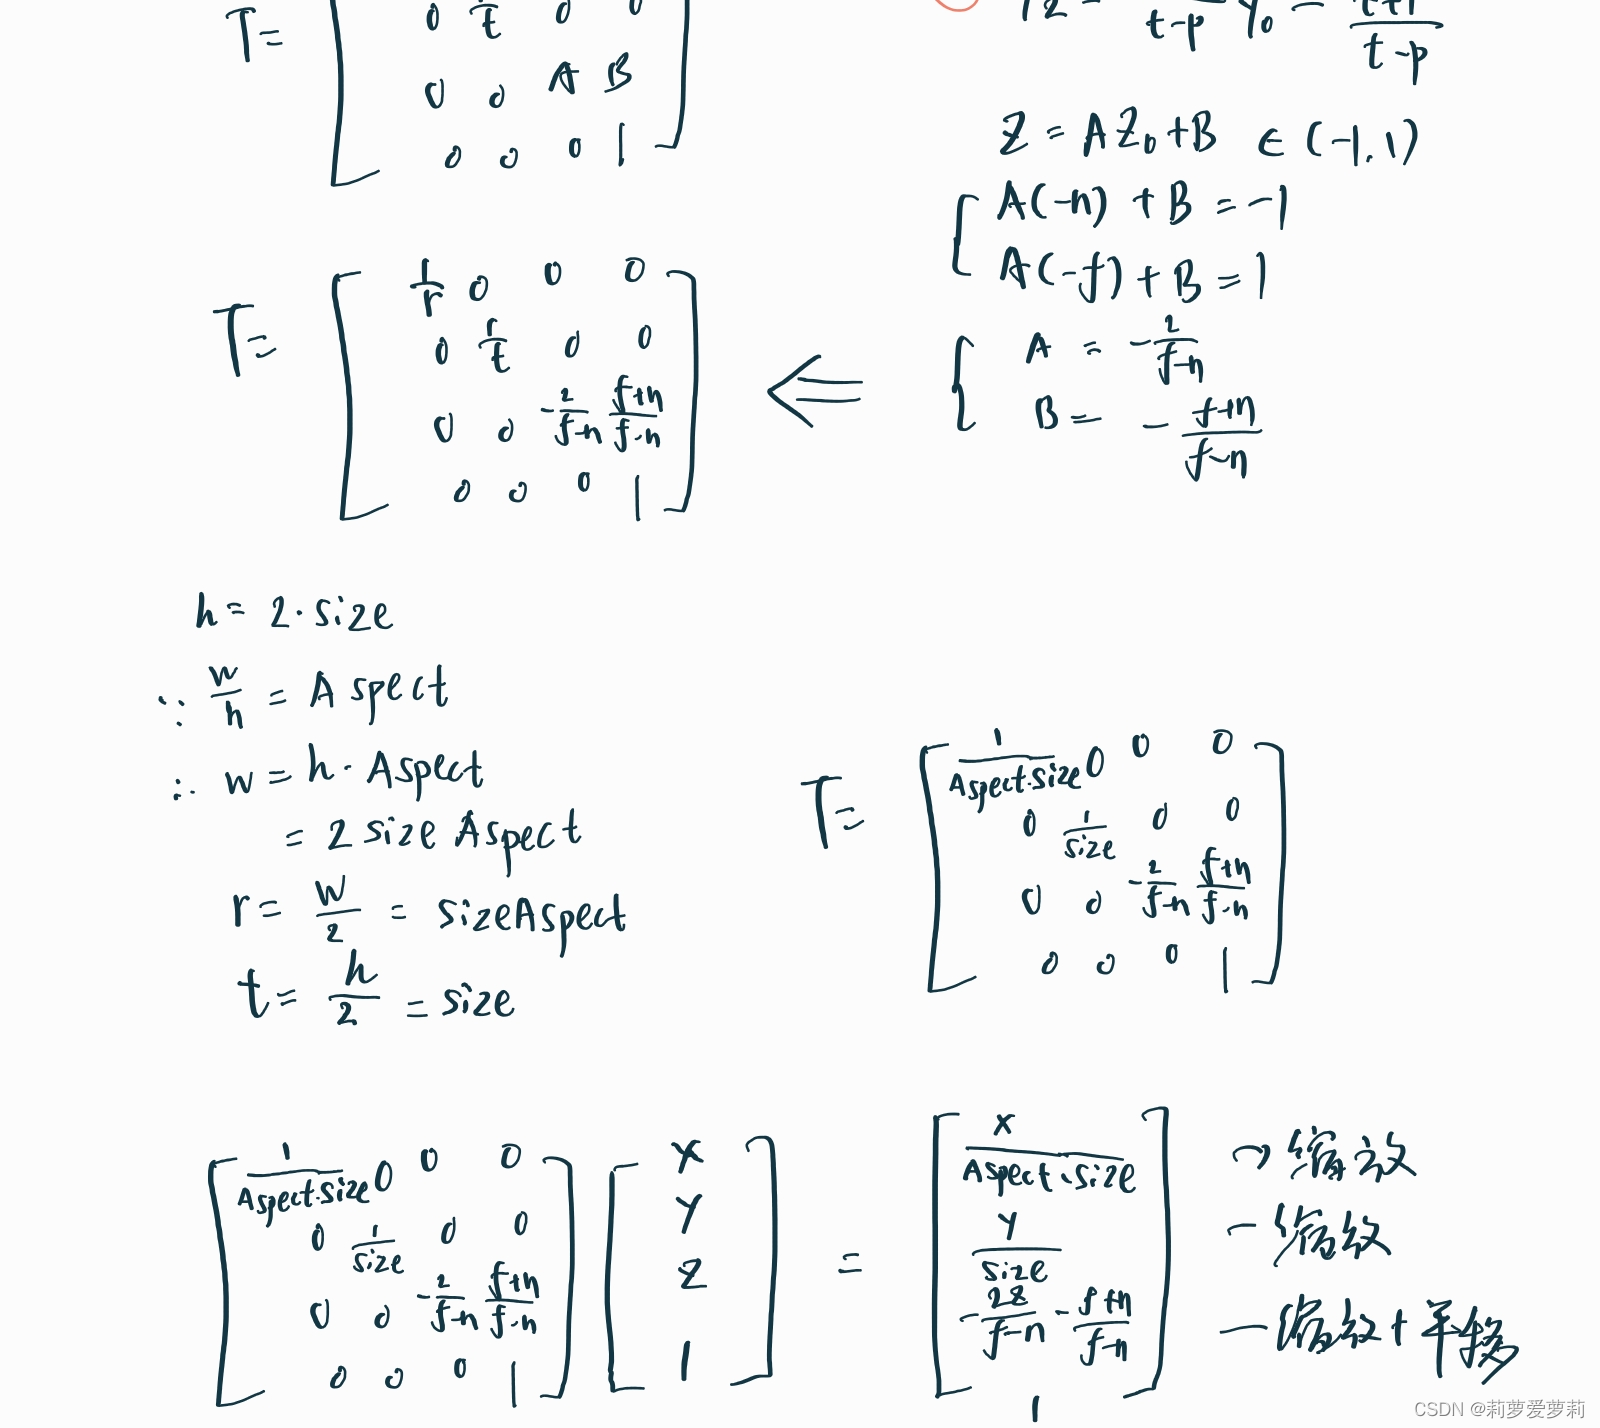 T = [ 0 1/t 0 0
0 0 A B
0 0 0 1 ]
t-p Y₀ - t+p / t-p
Z = A Z₀ + B ∈ (-1,1)
{ A(-n) + B = -1
A(-f) + B = 1
T = [ 1/r 0 0 0
0 1/t 0 0
0 0 -2/f-n f+n/f-n
0 0 0 1 ]
⇐ { A = -2/f-n
B = - f+n/f-n
h = 2·size
∵ w/h = Aspect
∴ w = h·Aspect
= 2 size Aspect
r = w/2 = sizeAspect
t = h/2 = size
T = [ 1/Aspect·size 0 0 0
0 1/size 0 0
0 0 -2/f-n f+n/f-n
0 0 0 1 ]
[ 1/Aspect·size 0 0 0
0 1/size 0 0
0 0 -2/f-n f+n/f-n
0 0 0 1 ]
[ x
y
z
1 ]
= [ x/Aspect·size
y/size
-2z/f-n - f+n/f-n
1 ]
→ 缩放
- 缩放
— 缩放+平移
CSDN @莉萝爱萝莉